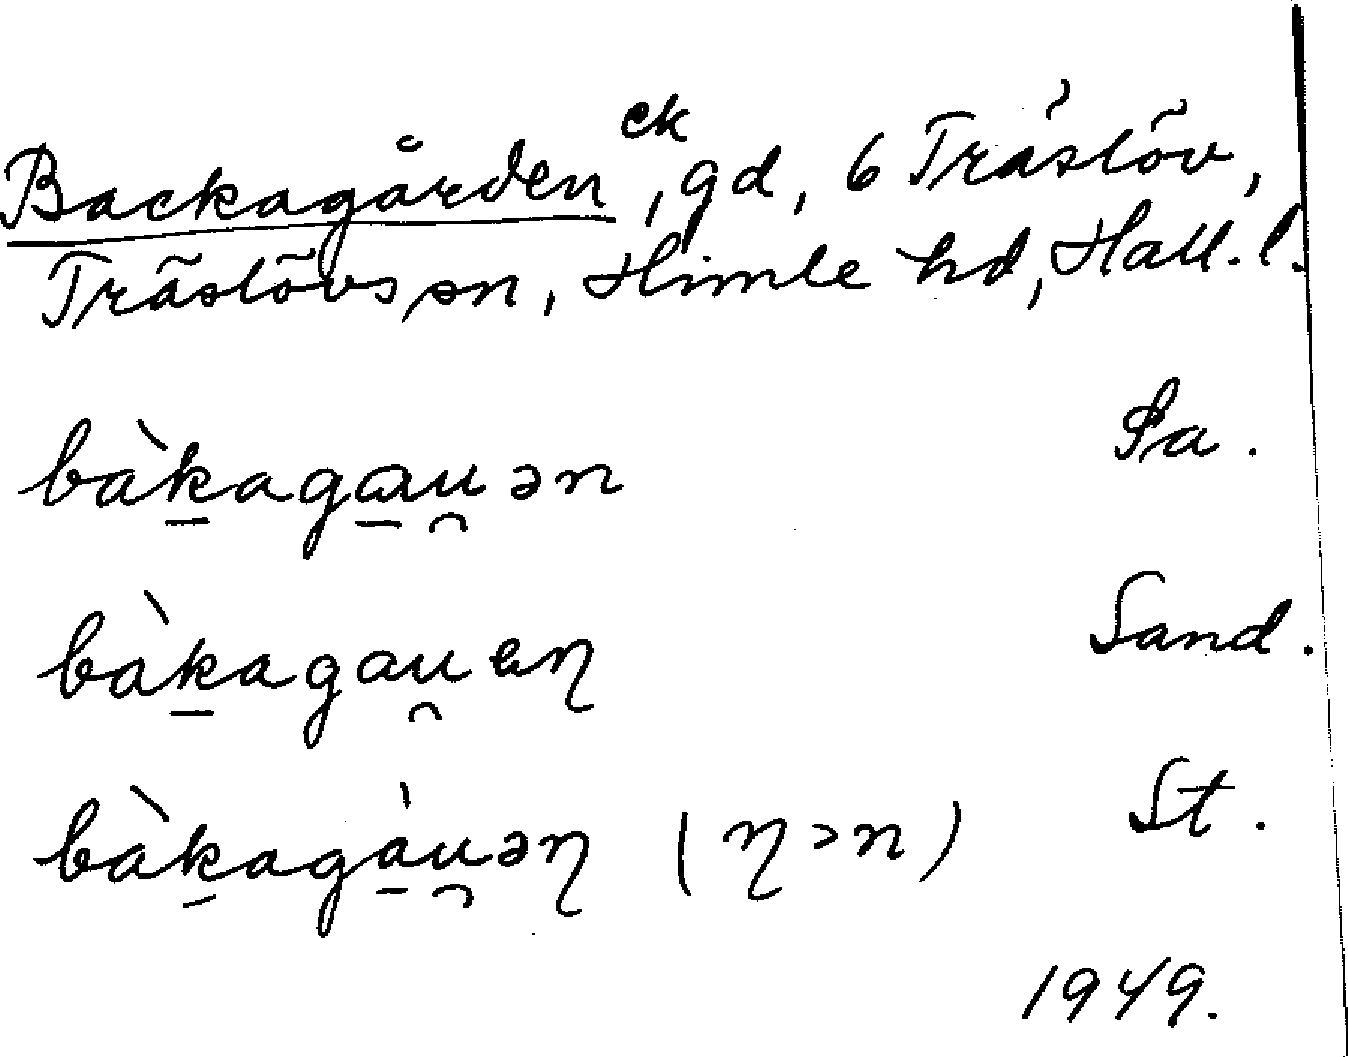 Backagården ek, gd, 6 Träslöv,
Träslövs sn, Himle hd, Hall. l.
bàk̠aga̠u̯ən Pa.
bàk̠agau̯eɳ Sand.
bàk̠agá̠u̯əɳ (ɳ>n) St.
1949.